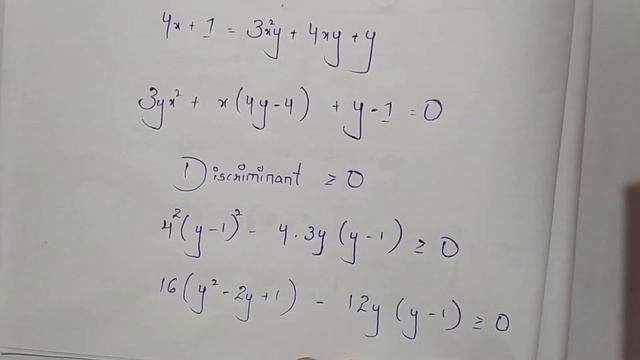 4x + 1 = 3x²y + 4xy + y
3yx² + x(4y-4) + y - 1 = 0
Discriminant ≥ 0
4²(y-1)² - 4.3y(y-1) ≥ 0
16(y² - 2y + 1) - 12y(y-1) ≥ 0